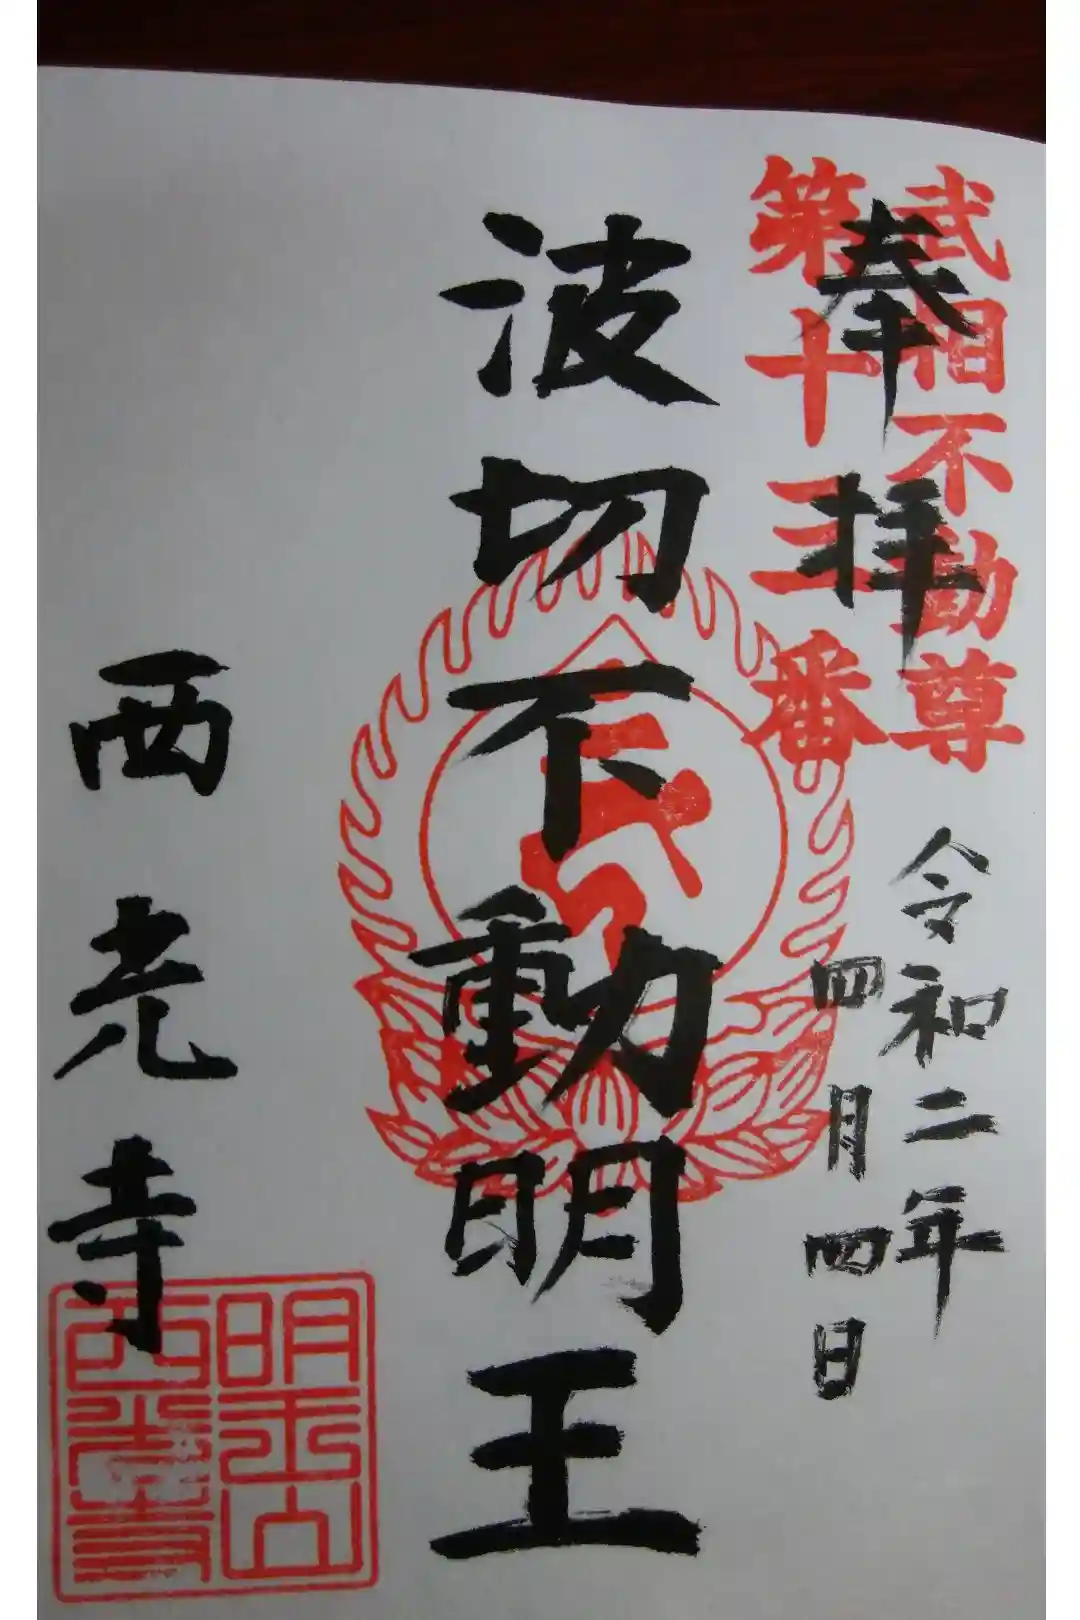 武相不動尊
第十三番
奉拝
令和二年
四月四日
波切不動明王
西光寺
明王山
西光寺